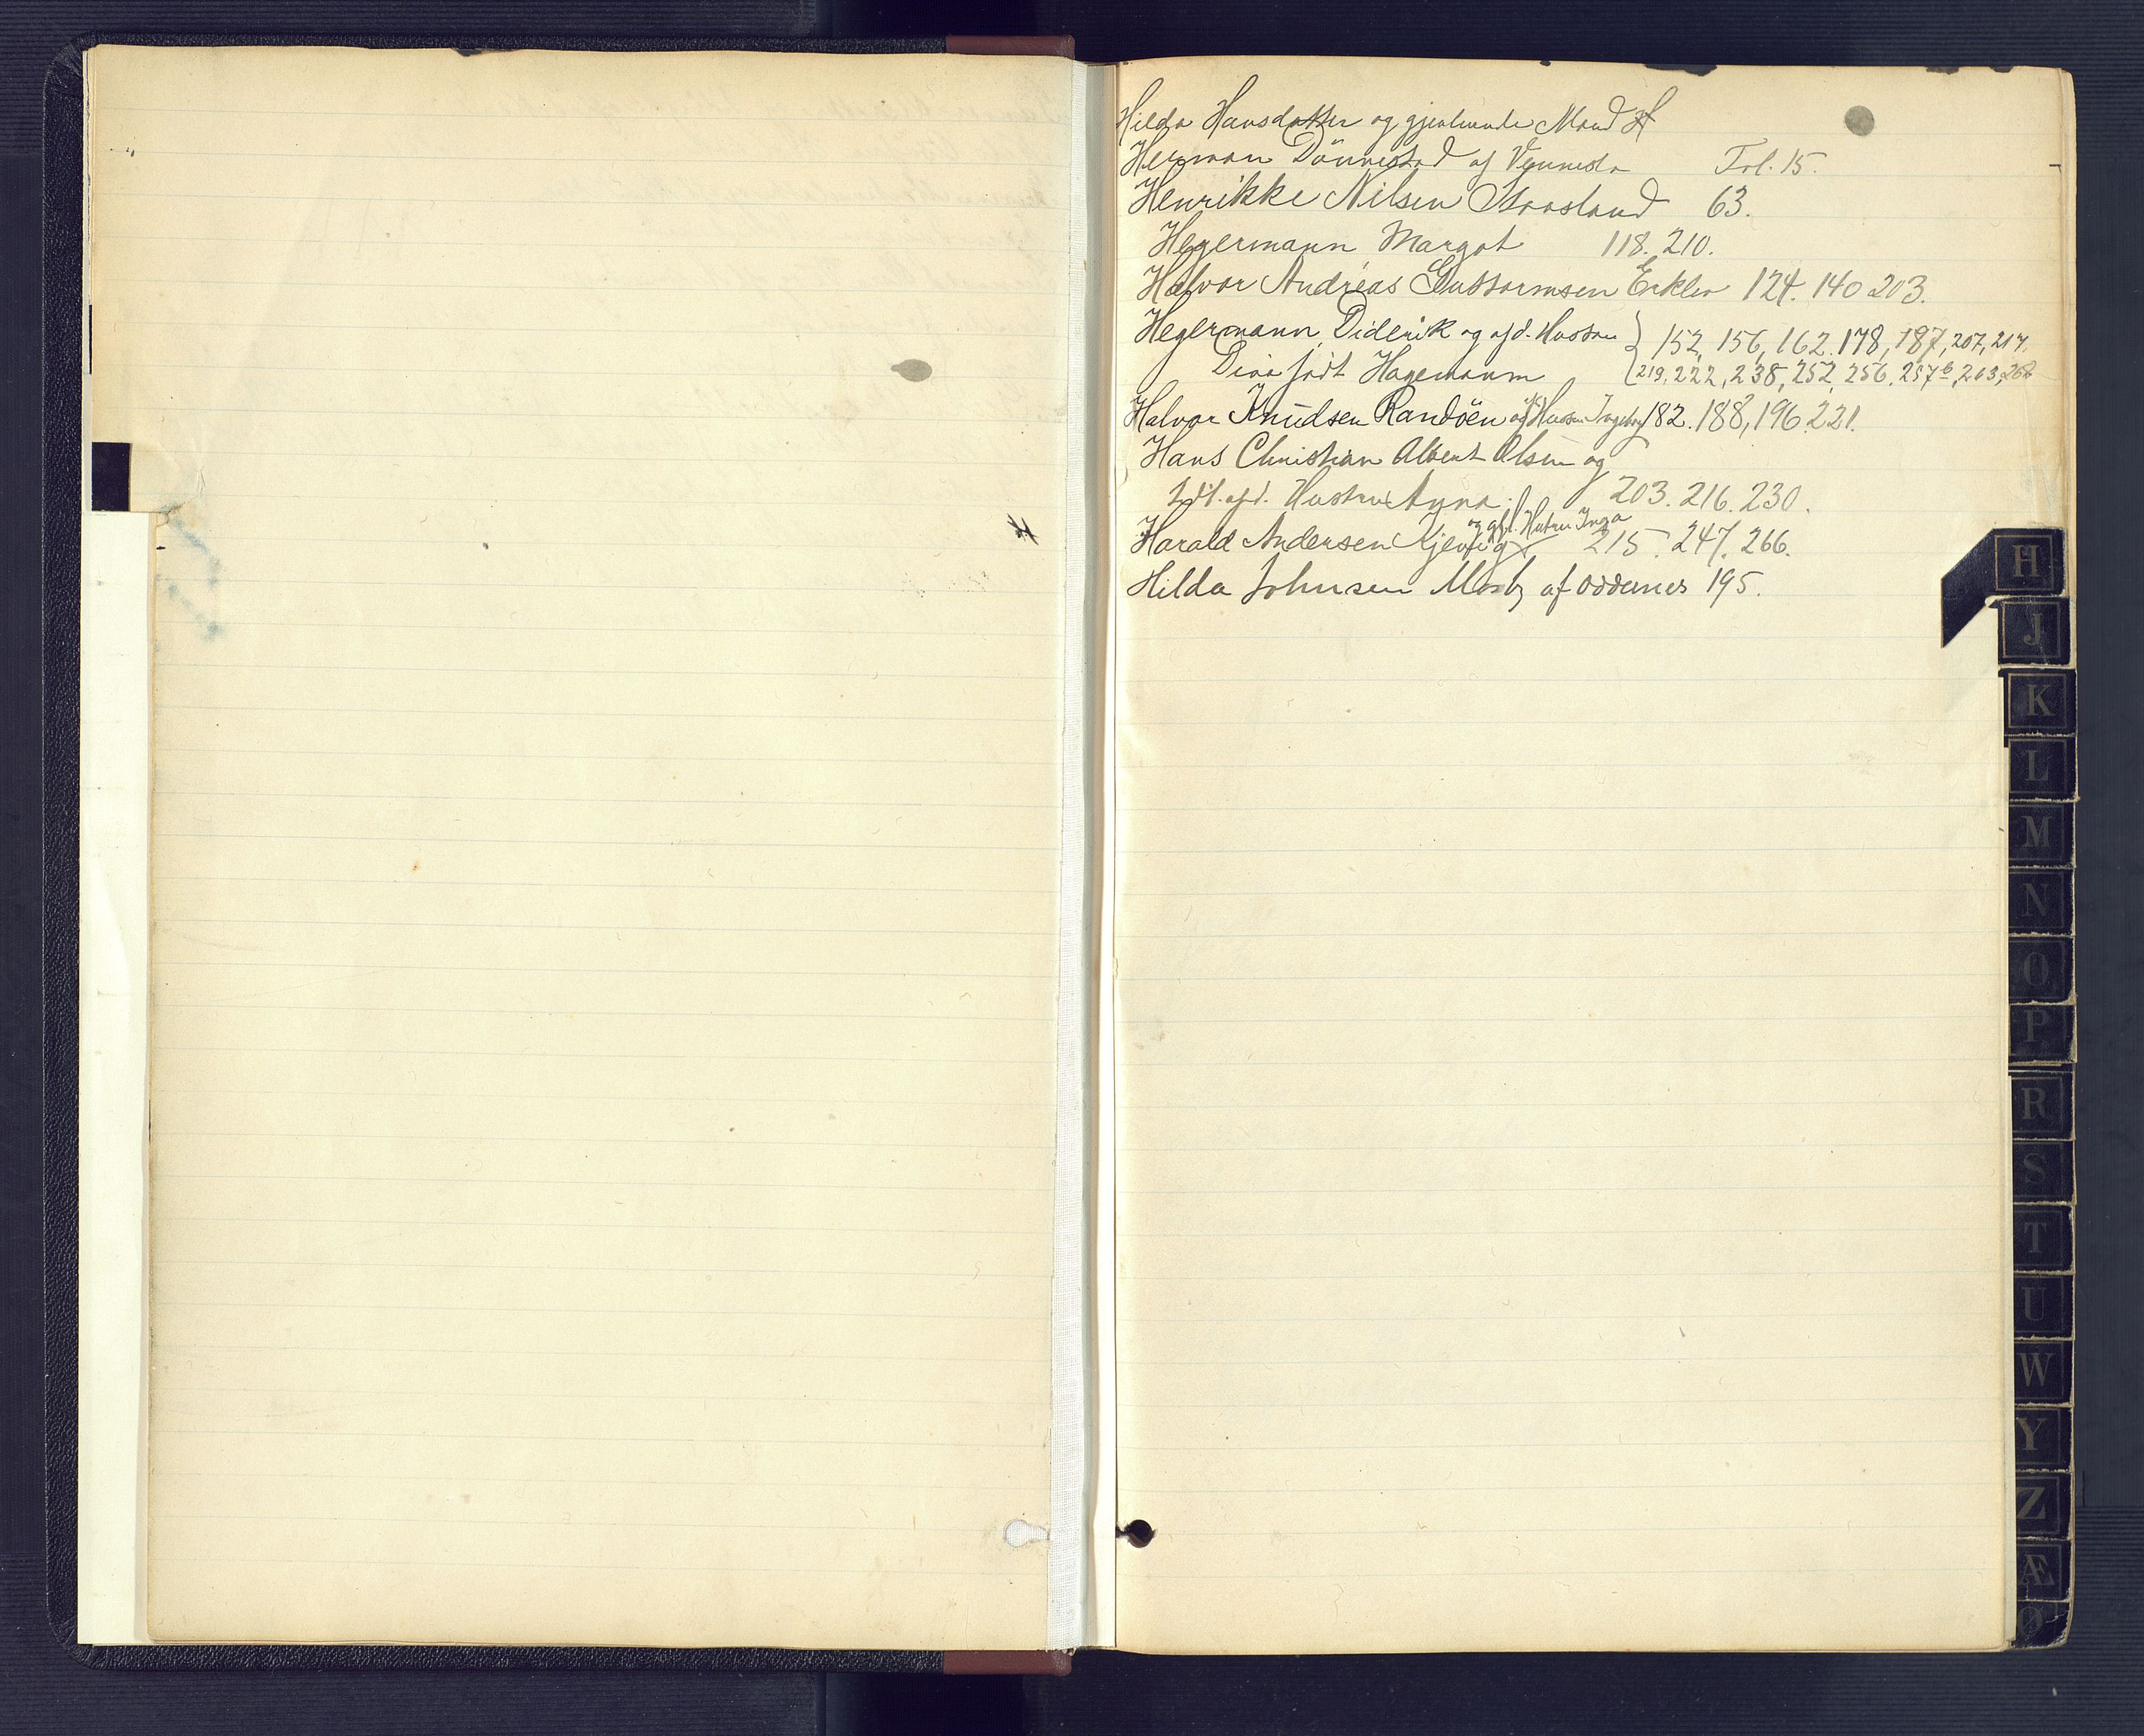 Hilda Hansdatter og gjenlevende Mand H
Herman Dönnestad af Vennesla Fol. 15.
Henrikke Nilsen Aasland 63.
Hegermann, Margot 118. 210.
Halvor Andreas Guttormsen Erklev 124. 140 203.
Hegermann, Diderik og afd. Hustru } 152, 156, 162. 178, 187, 207, 217,
Dina født Hagemann { 219, 222, 238, 252, 256, 257b, 263, 268
Halvor Knudsen Randöen og Hustru Ingeborg 182. 188, 196. 221.
Hans Christian Albert Olsen og
tdl. afd. Hustru Anna 203. 216. 230.
og afd. Hustru Inga
Harald Andersen Kjevig 215. 247. 266.
Hilda Johnsen Mosby af Oddernes 195.
H
J
K
L
M
N
O
P
R
S
T
U
W
Y
Z
Æ
Ø